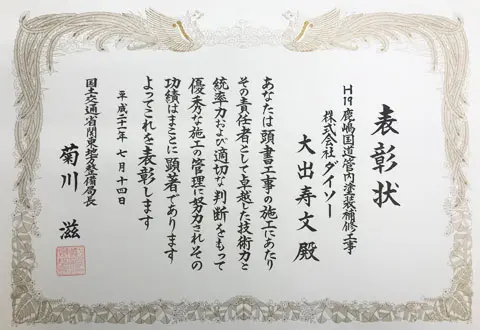 表彰状
H19鹿嶋国道管内塗装補修工事
株式会社ダイソー
大出寿文殿
あなたは頭書工事の施工にあたり
その責任者として卓越した技術力と
統率力および適切な判断をもって
優秀な施工の管理に努力されその
功績はまことに顕著であります
よってこれを表彰します
平成二十一年七月十四日
国土交通省関東地方整備局長
菊川滋